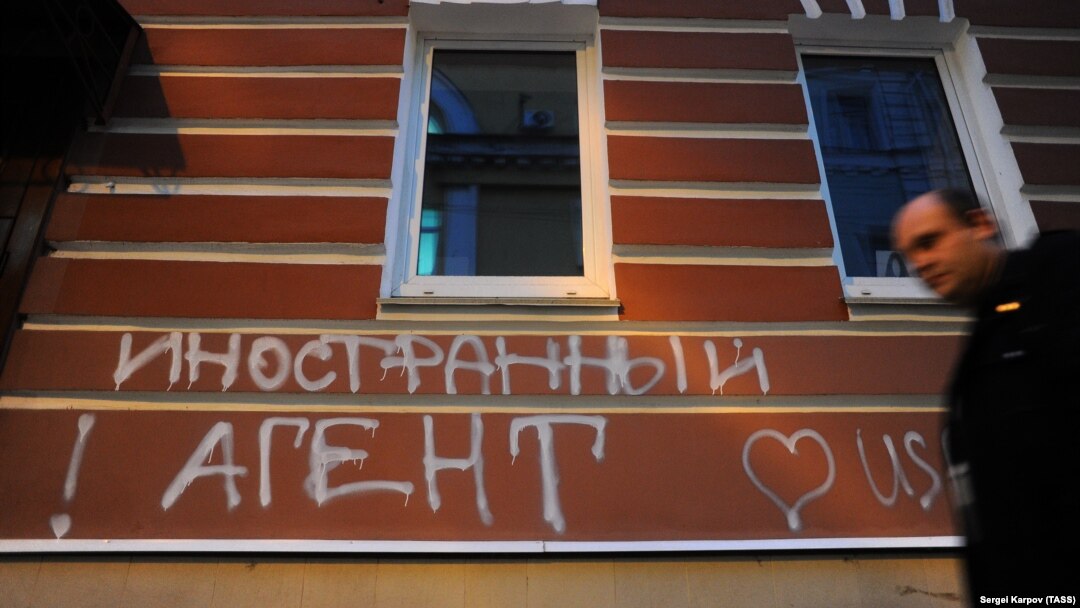 ИНОСТРАННЫЙ
! АГЕНТ ♡ US
Sergei Karpov (TASS)